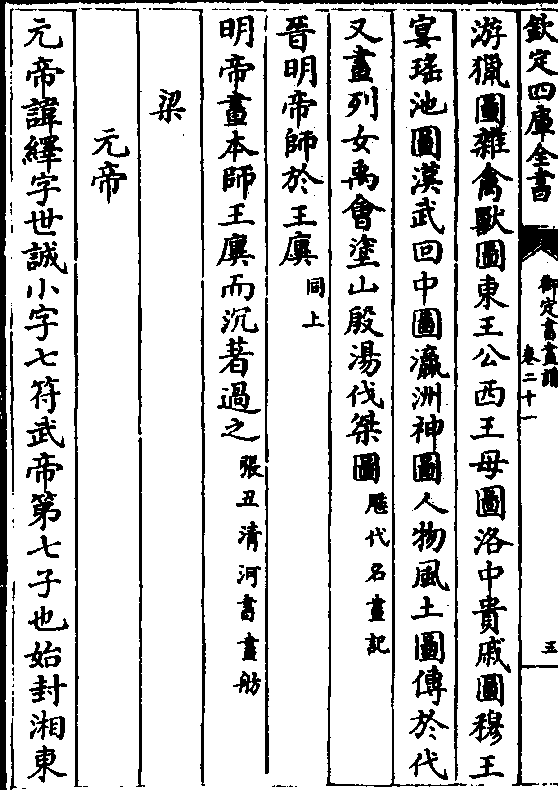 欽定四庫全書
御定書畫譜
卷二十一
五
游獵圖雜禽獸圖東王公西王母圖洛中貴戚圖穆王
宴瑤池圖漢武回中圖瀛洲神圖人物風土圖傳於代
又畫列女禹會塗山殷湯伐桀圖歷代名畫記
晉明帝師於王廙同上
明帝畫本師王廙而沉著過之張丑清河書畫舫
梁
元帝
元帝諱繹字世誠小字七符武帝第七子也始封湘東